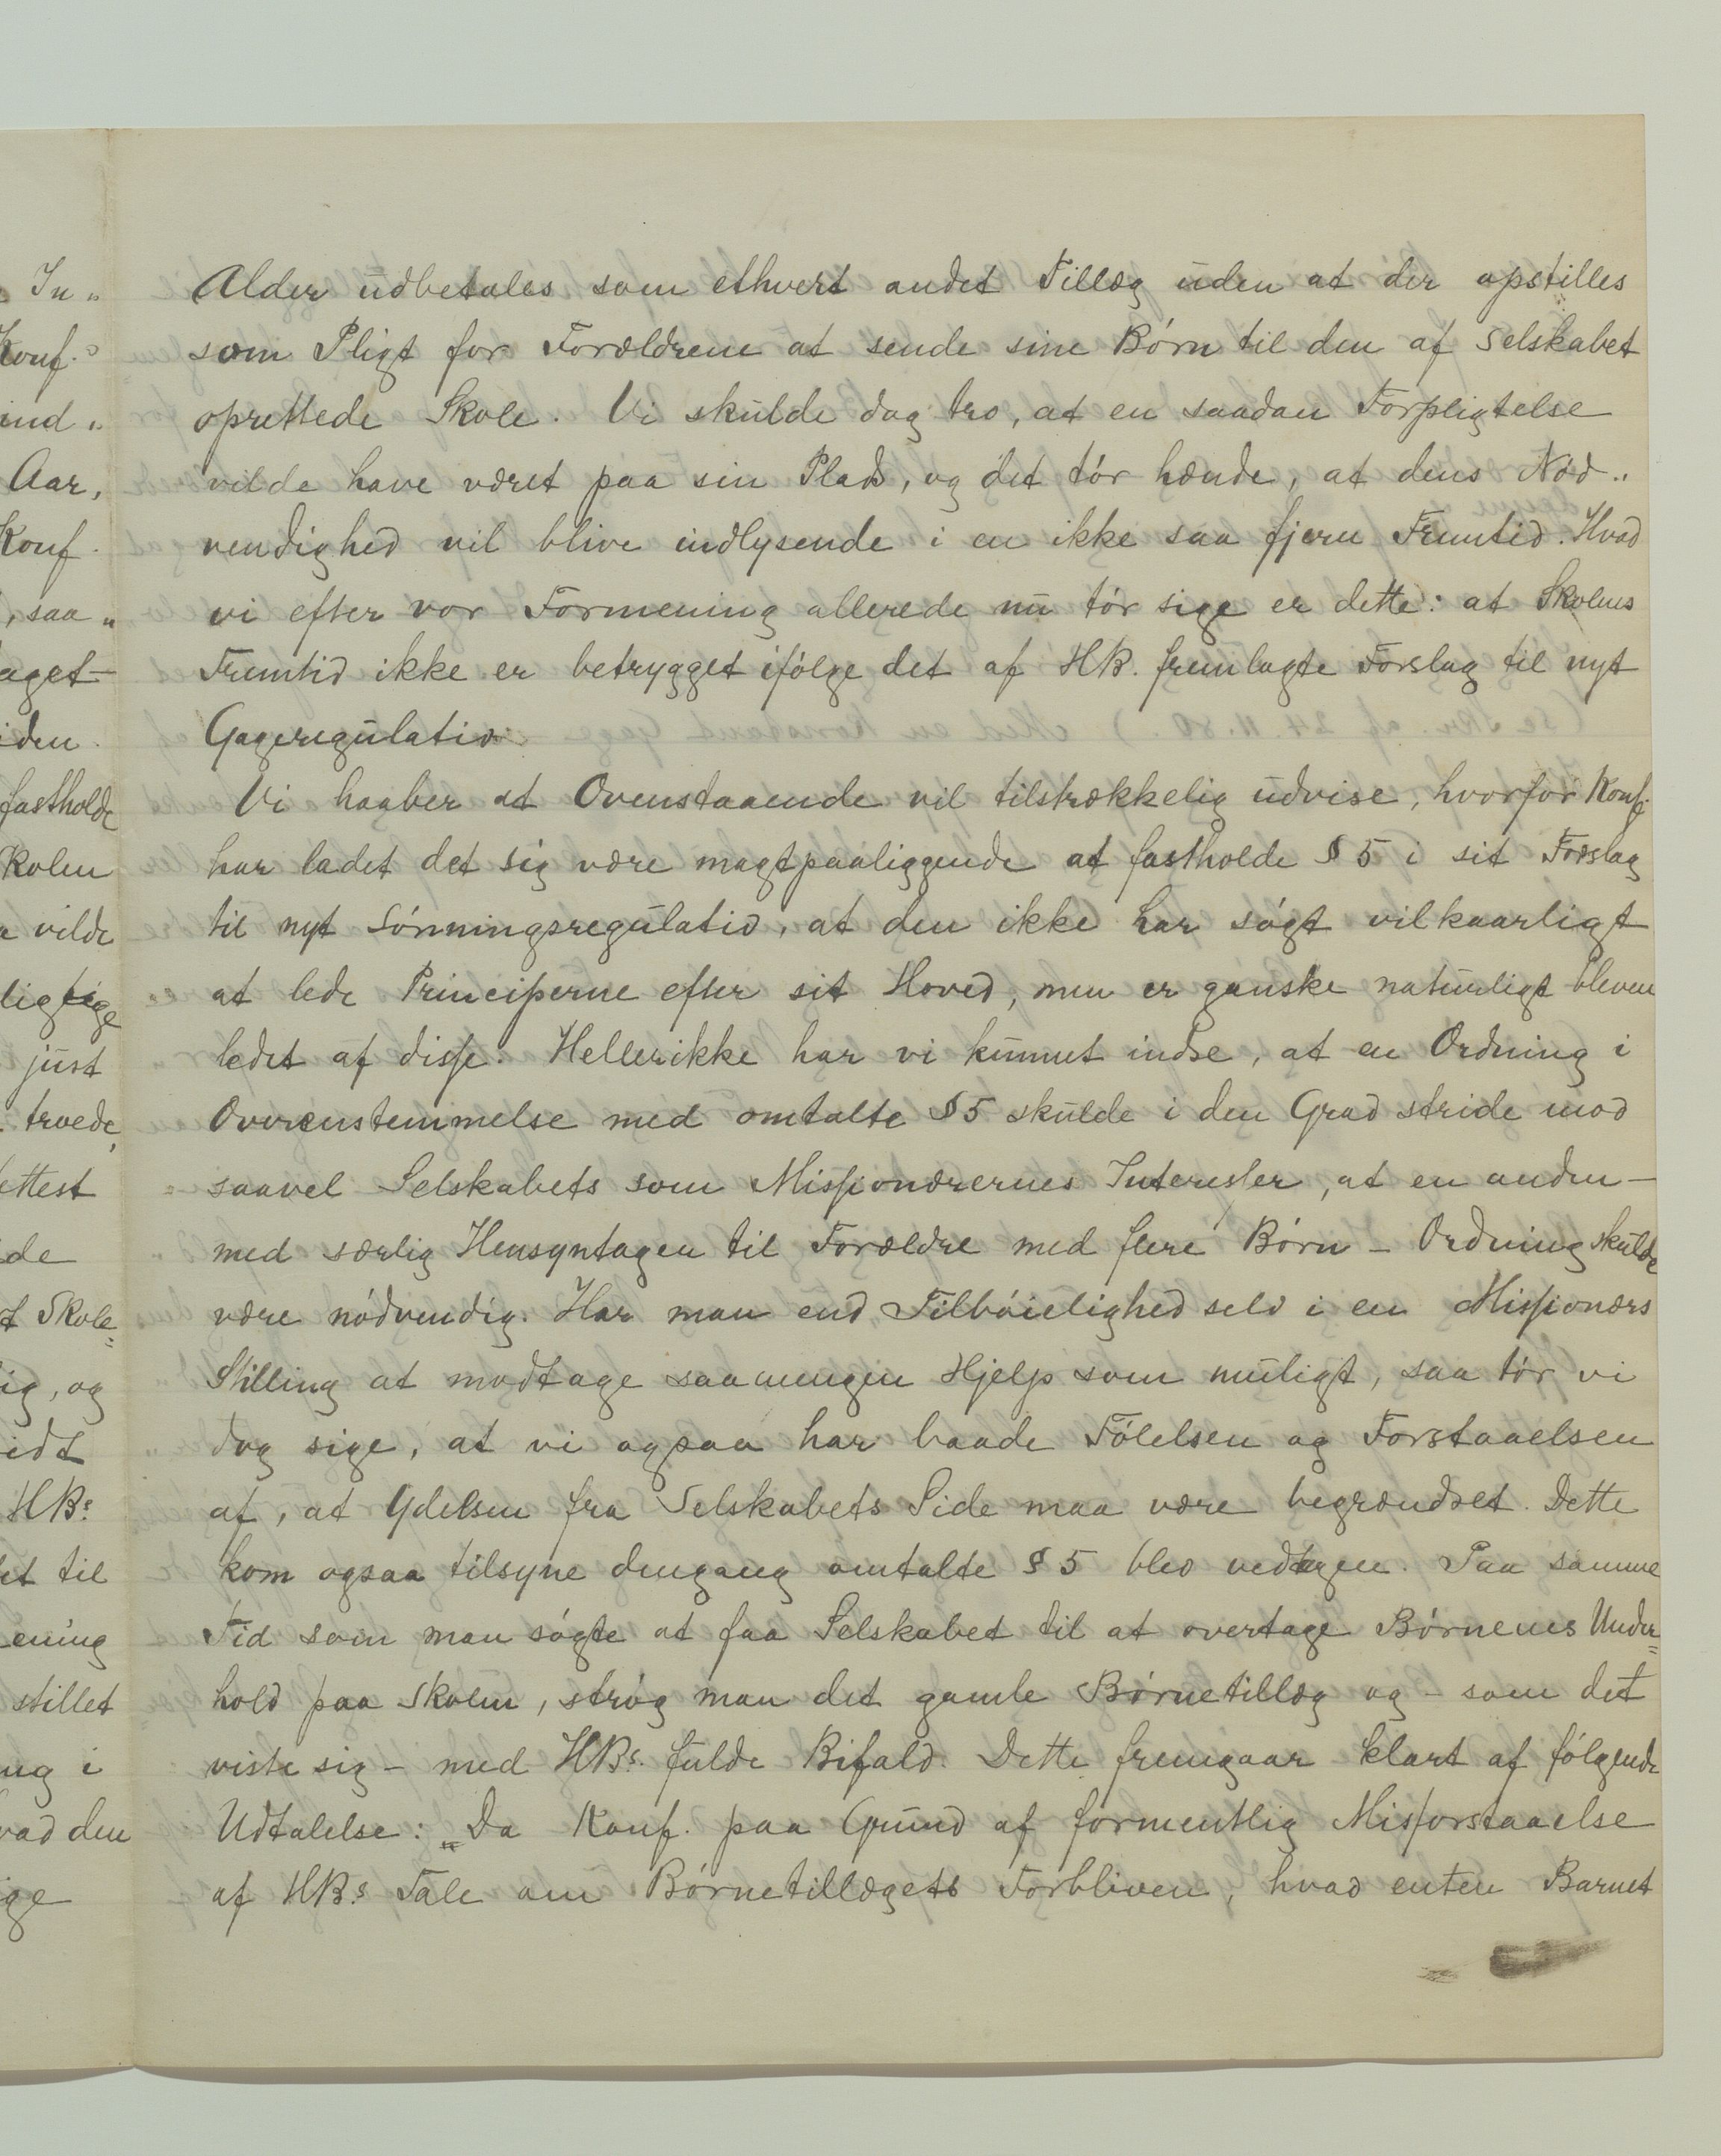 Alder udbetales som ethvert andet Tillæg uden at der opstilles
som Pligt for Forældrene at sende sine Børn til den af Selskabet
oprettede Skole. Vi skulde dog tro, at en saadan Forpligtelse
vilde have været paa sin Plads, og det tør hænde, at dens Nød„
vendighed vil blive indlysende i en ikke saa fjern Fremtid. Hvad
vi efter vor Formening allerede nu tør sige er dette: at Skolens
Fremtid ikke er betrygget ifølge det af HB. fremlagte Forslag til nyt
Gageregulativ.
Vi haaber at Ovenstaaende vil tilstrækkelig udvise, hvorfor Konf.
har ladet det sig være magtpaaliggende at fastholde § 5 i sit Forslag
til nyt Lønningsregulativ, at den ikke har søgt vilkaarligt
at lede Principerne efter sit Hoved, men er ganske naturligt bleven
ledet af disse. Hellerikke har vi kunnet indse, at en Ordning i
Overenstemmelse med omtalte § 5 skulde i den Grad stride mod
saavel Selskabets som Missionærernes Interesser, at en anden –
med særlig Hensyntagen til Forældre med flere Børn – Ordning skulde
være nødvendig. Har man end Tilbøielighed selv i en Missionærs
Stilling at modtage saamegen Hjelp som muligt, saa tør vi
dog sige, at vi ogsaa har baade Følelsen og Forstaaelsen
af, at Ydelsen fra Selskabets Side maa være begrændset. Dette
kom ogsaa tilsyne dengang omtalte § 5 blev vedtagen. Paa samme
Tid som man søgte at faa Selskabet til at overtage Børnenes Under=
hold paa Skolen, strøg man det gamle Børnetillæg og – som det
viste sig – med HBs. fulde Bifald. Dette fremgaar klart af følgende
Udtalelse: „Da Konf. paa Grund af formentlig Misforstaaelse
af HB.s Tale om Børnetillægets Forbliven, hvad enten Barnet